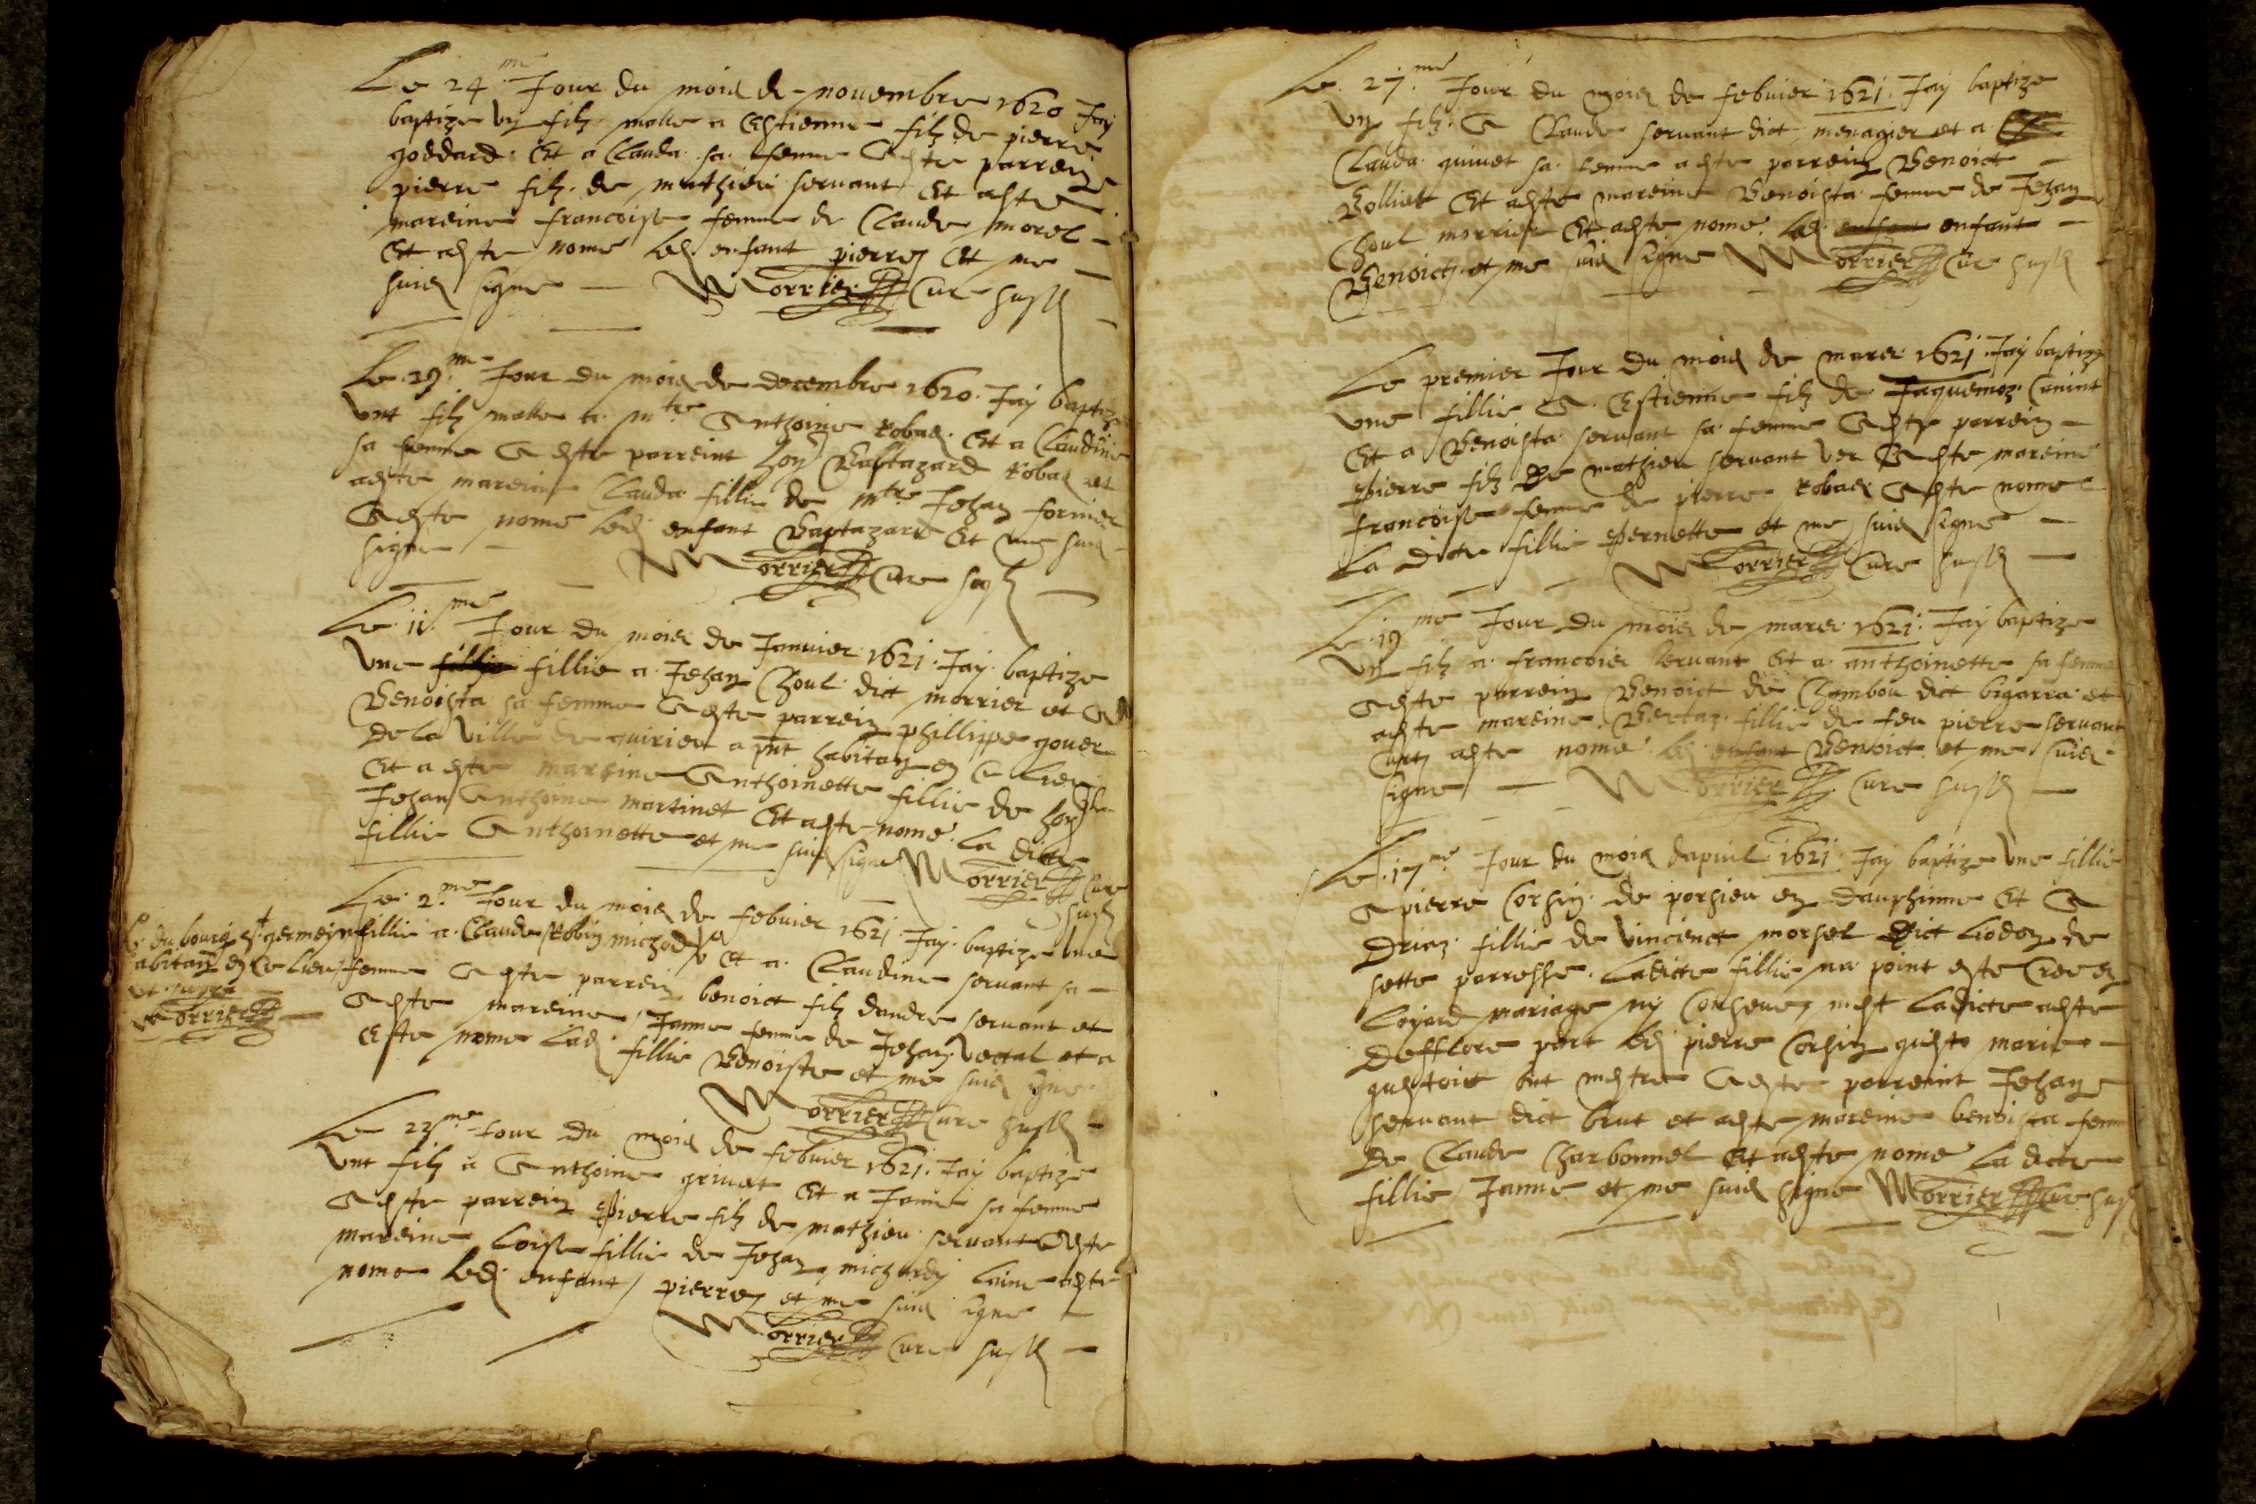 Le 24.me Jour du mois de novembre 1620 Jay
baptize un filz malle a Estienne filz de pierre
goddard. Et a Clauda sa femme a este parrein
pierre filz de mathieu servant Et a este
mareine francoise femme de Claude morel
Et a este nome led. enfant pierre Et me
suis signe Morrier Cure susd
Le 29.me Jour du mois de decembre 1620. Jay baptize
unt filz malle a mtre Anthoine Robas Et a Claudine
sa femme A este parreint hon Baltazard Robas et
a este mareine Clauda fillie de mtre Jehan fornier
A este nome led. enfant Baptazard Et me suis
signe Morrier Cure susd
Le 11.me Jour du mois de Janvier 1621. Jay baptize
une fillie fillie a Jehan Choul dict morrier et A
Benoista sa femme A este parrein phillippe gover
de la ville de quirieu a pnt habitan en ce lieu
Et a este mareine Anthoinette fillie de hon
Jehan Anthoine martinet Et a este nome la dicte
fillie Anthoinette et me suis signe Morrier Cure
susd
Le 2.me Jour du mois de febvier 1621. Jay baptize une
fillie a Claude Robin michod Et a Claudine servant sa
femme A este parrein benoict filz dandre servant et
A este mareine Janne femme de Jehan vectal et a
Este nome lad. fillie Benoiste et me suis signe
Morrier Cure susd
du bourg st germein
abitan en ce lieu
ut supra
Morrier
Le 22.me Jour du mois de febvier 1621. Jay baptize
unt filz a Anthoine grivat Et a Janne sa femme
A este parrein Pierre filz de mathieu servant A este
mareine Loise fillie de Jehan michard laine a este
nome led. enfant pierre et me suis signe
Morrier Cure susd
Le 27.me Jour du mois de febvier 1621. Jay baptize
un filz A Claude servant dict menagier et a
Clauda quivet sa femme a este parrein Benoict
Bolliet Et a este mareine Benoista femme de Jehan
Choul morrier Et a este nome led. enfant enfant
Benoict et me suis signe Morrier Cure susd
Le premier Jour du mois de mars 1621. Jay baptize
une fillie A Estienne filz de Jaquemoz Cunint
Et a Benoista servant sa femme A este parrein
Pierre filz de mathieu servant A este mareine
francoise femme de pierre Robas A este nome
La dicte fillie Pernette et me suis signe
Morrier Cure susd
Le 19.me Jour du mois de mars 1621. Jay baptize
un filz a francois servant Et a anthoinette sa femme
A este parrein Benoict de Chambou dict bigarra et
a este mareine fillie de feu pierre servant
a este nome led. enfant Benoict et me suis
signe Morrier Cure susd
Le 17.me Jour du mois dapvril 1621 Jay baptize une fillie
A pierre Corsin de porsieu en dauphinne Et A
Driaz fillie de vincenct morsel Dict liodoz de
sette parresse. Ladicte fillie na point este Cree en
loyard mariage ny Corseue mest ladicte a este
Defflore part led. pierre Corsin mario
questoit A este parreint Jehan
servant dict brut et a este mareine benoista femme
de Claude Charbonnel Et a este nome la dicte
fillie Janne et me suis signe Morrier Cure susd